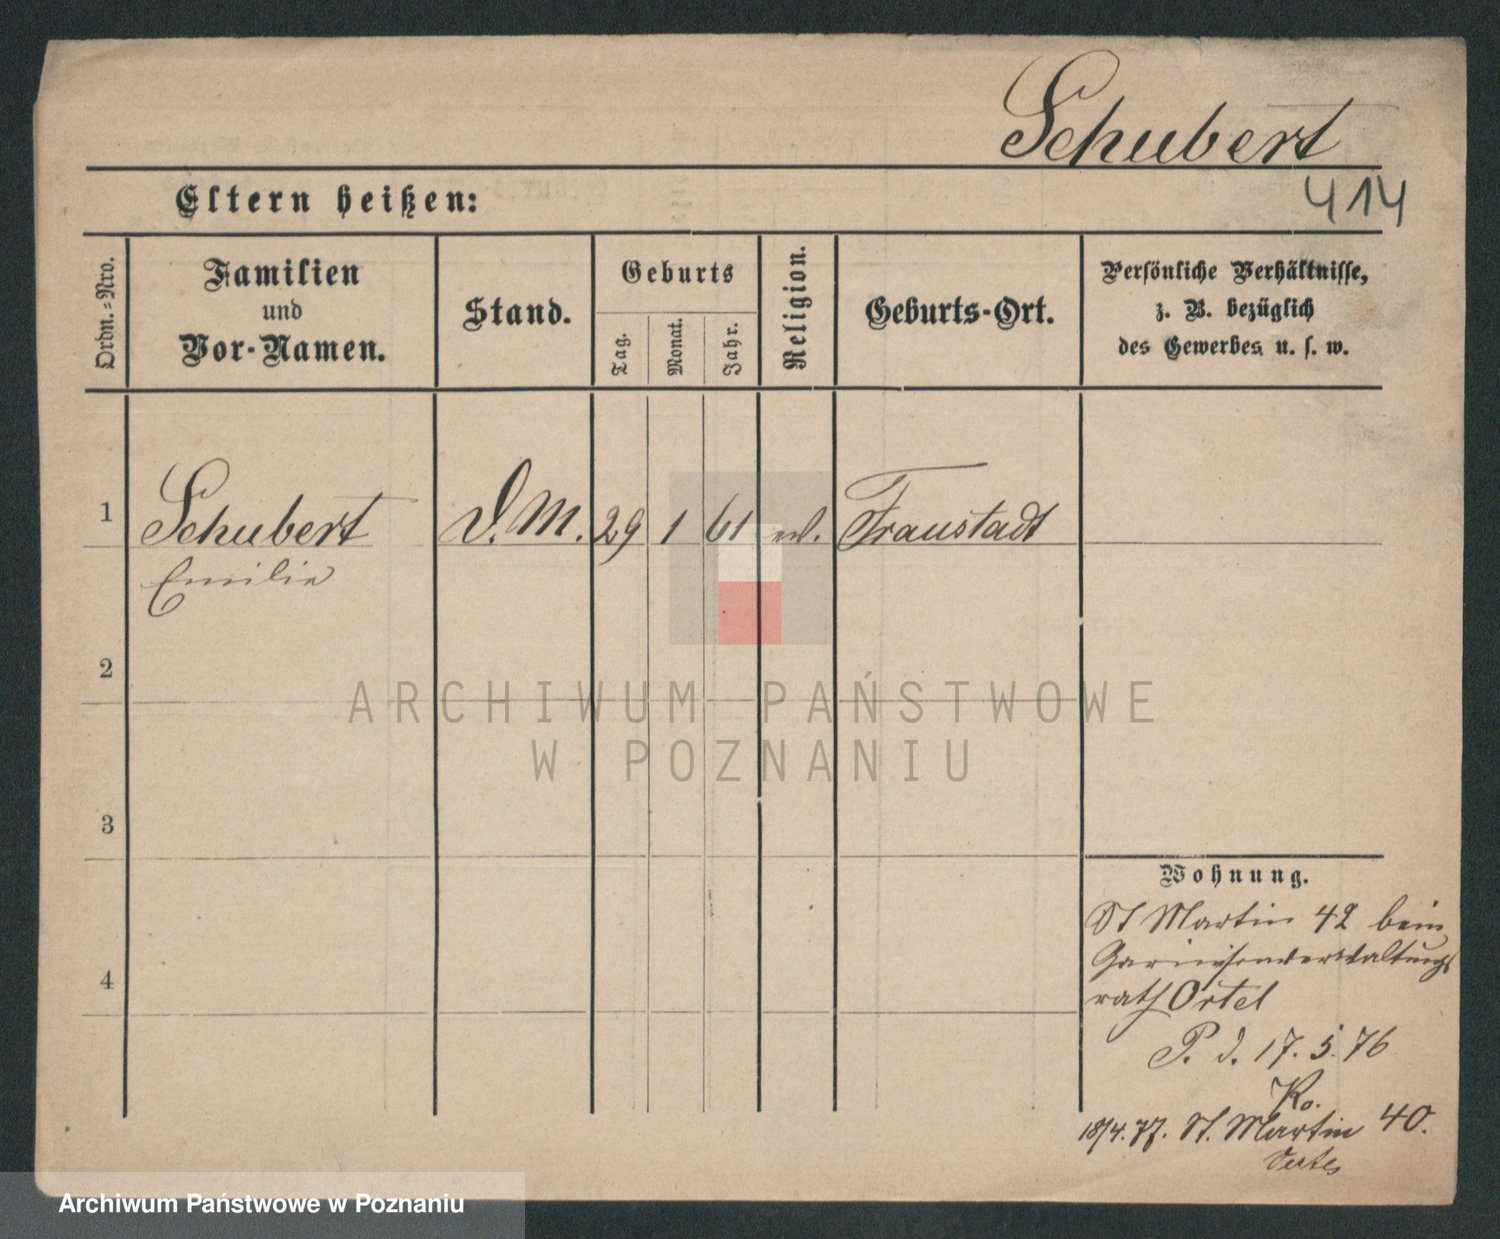 Schubert
414
Eltern heißen:
Ordn.-Nro.
Familien
und
Vor-Namen.
Stand.
Geburts
Tag.
Monat.
Jahr.
Religion.
Geburts-Ort.
Persönliche Verhältnisse,
z. B. bezüglich
des Gewerbes u. s. w.
1 Schubert D. M. 29 1 61 Fraustadt
Emilie
2
3
4
Wohnung.
St Martin 42 beim
Garnisonverwaltungs
rath Ortel
P. d. 17. 5. 76
Ko.
18/4. 77. St. Martin 40.
ARCHIWUM PAŃSTWOWE
W POZNANIU
Archiwum Państwowe w Poznaniu